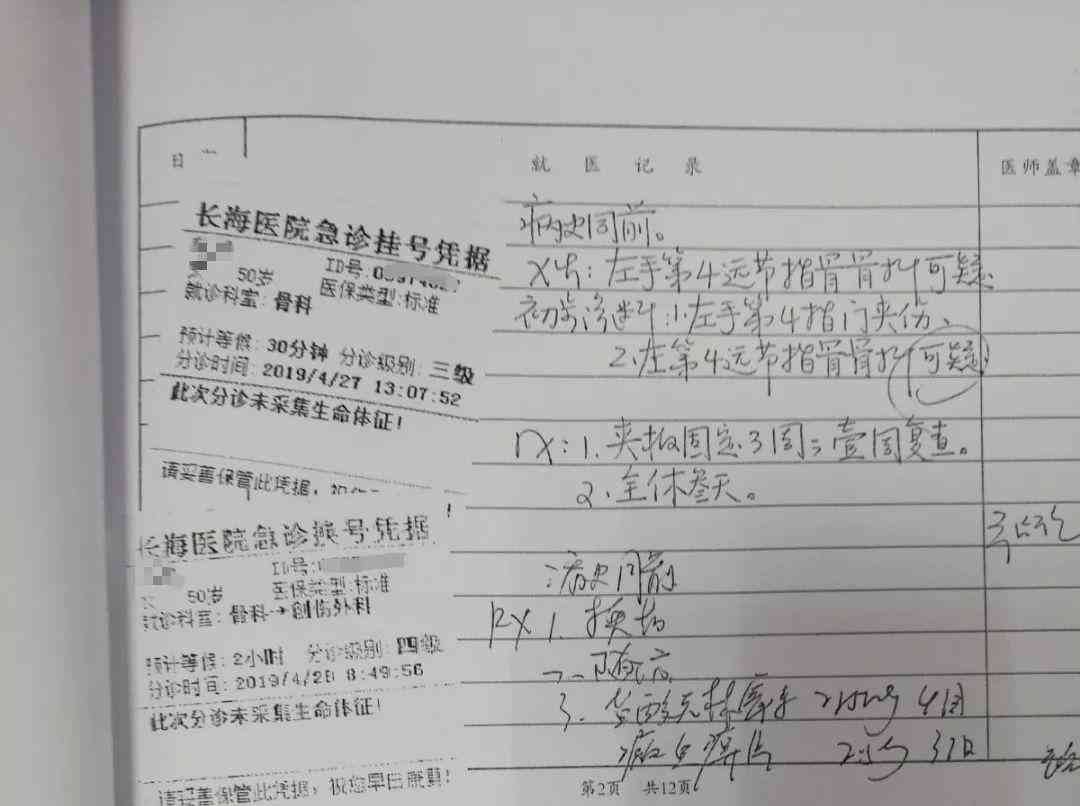 日
就 医 记 录
医师盖章
长海医院急诊挂号凭据
ID号:
50岁
医保类型:标准
就诊科室: 骨科
预计等候: 30分钟 分诊级别: 三级
分诊时间: 2019/4/27 13:07:52
此次分诊未采集生命体征!
请妥善保管此凭据,
病史同前。
X片: 左手第4远节指骨骨折可疑
初步诊断: 1.左手第4指门夹伤、
2.左第4远节指骨骨折可疑
rx: 1. 夹板固定3周; 壹周复查。
2. 全休叁天。
长海医院急诊挂号凭据
ID号:
50岁
医保类型:标准
就诊科室: 骨科→创伤外科
预计等候: 2小时 分诊级别: 四级
分诊时间: 2019/4/28 8:49:56
此次分诊未采集生命体征!
请妥善保管此凭据, 祝您早日康复!
: 病史同前
RX 1. 换药
3.
第2页 共12页